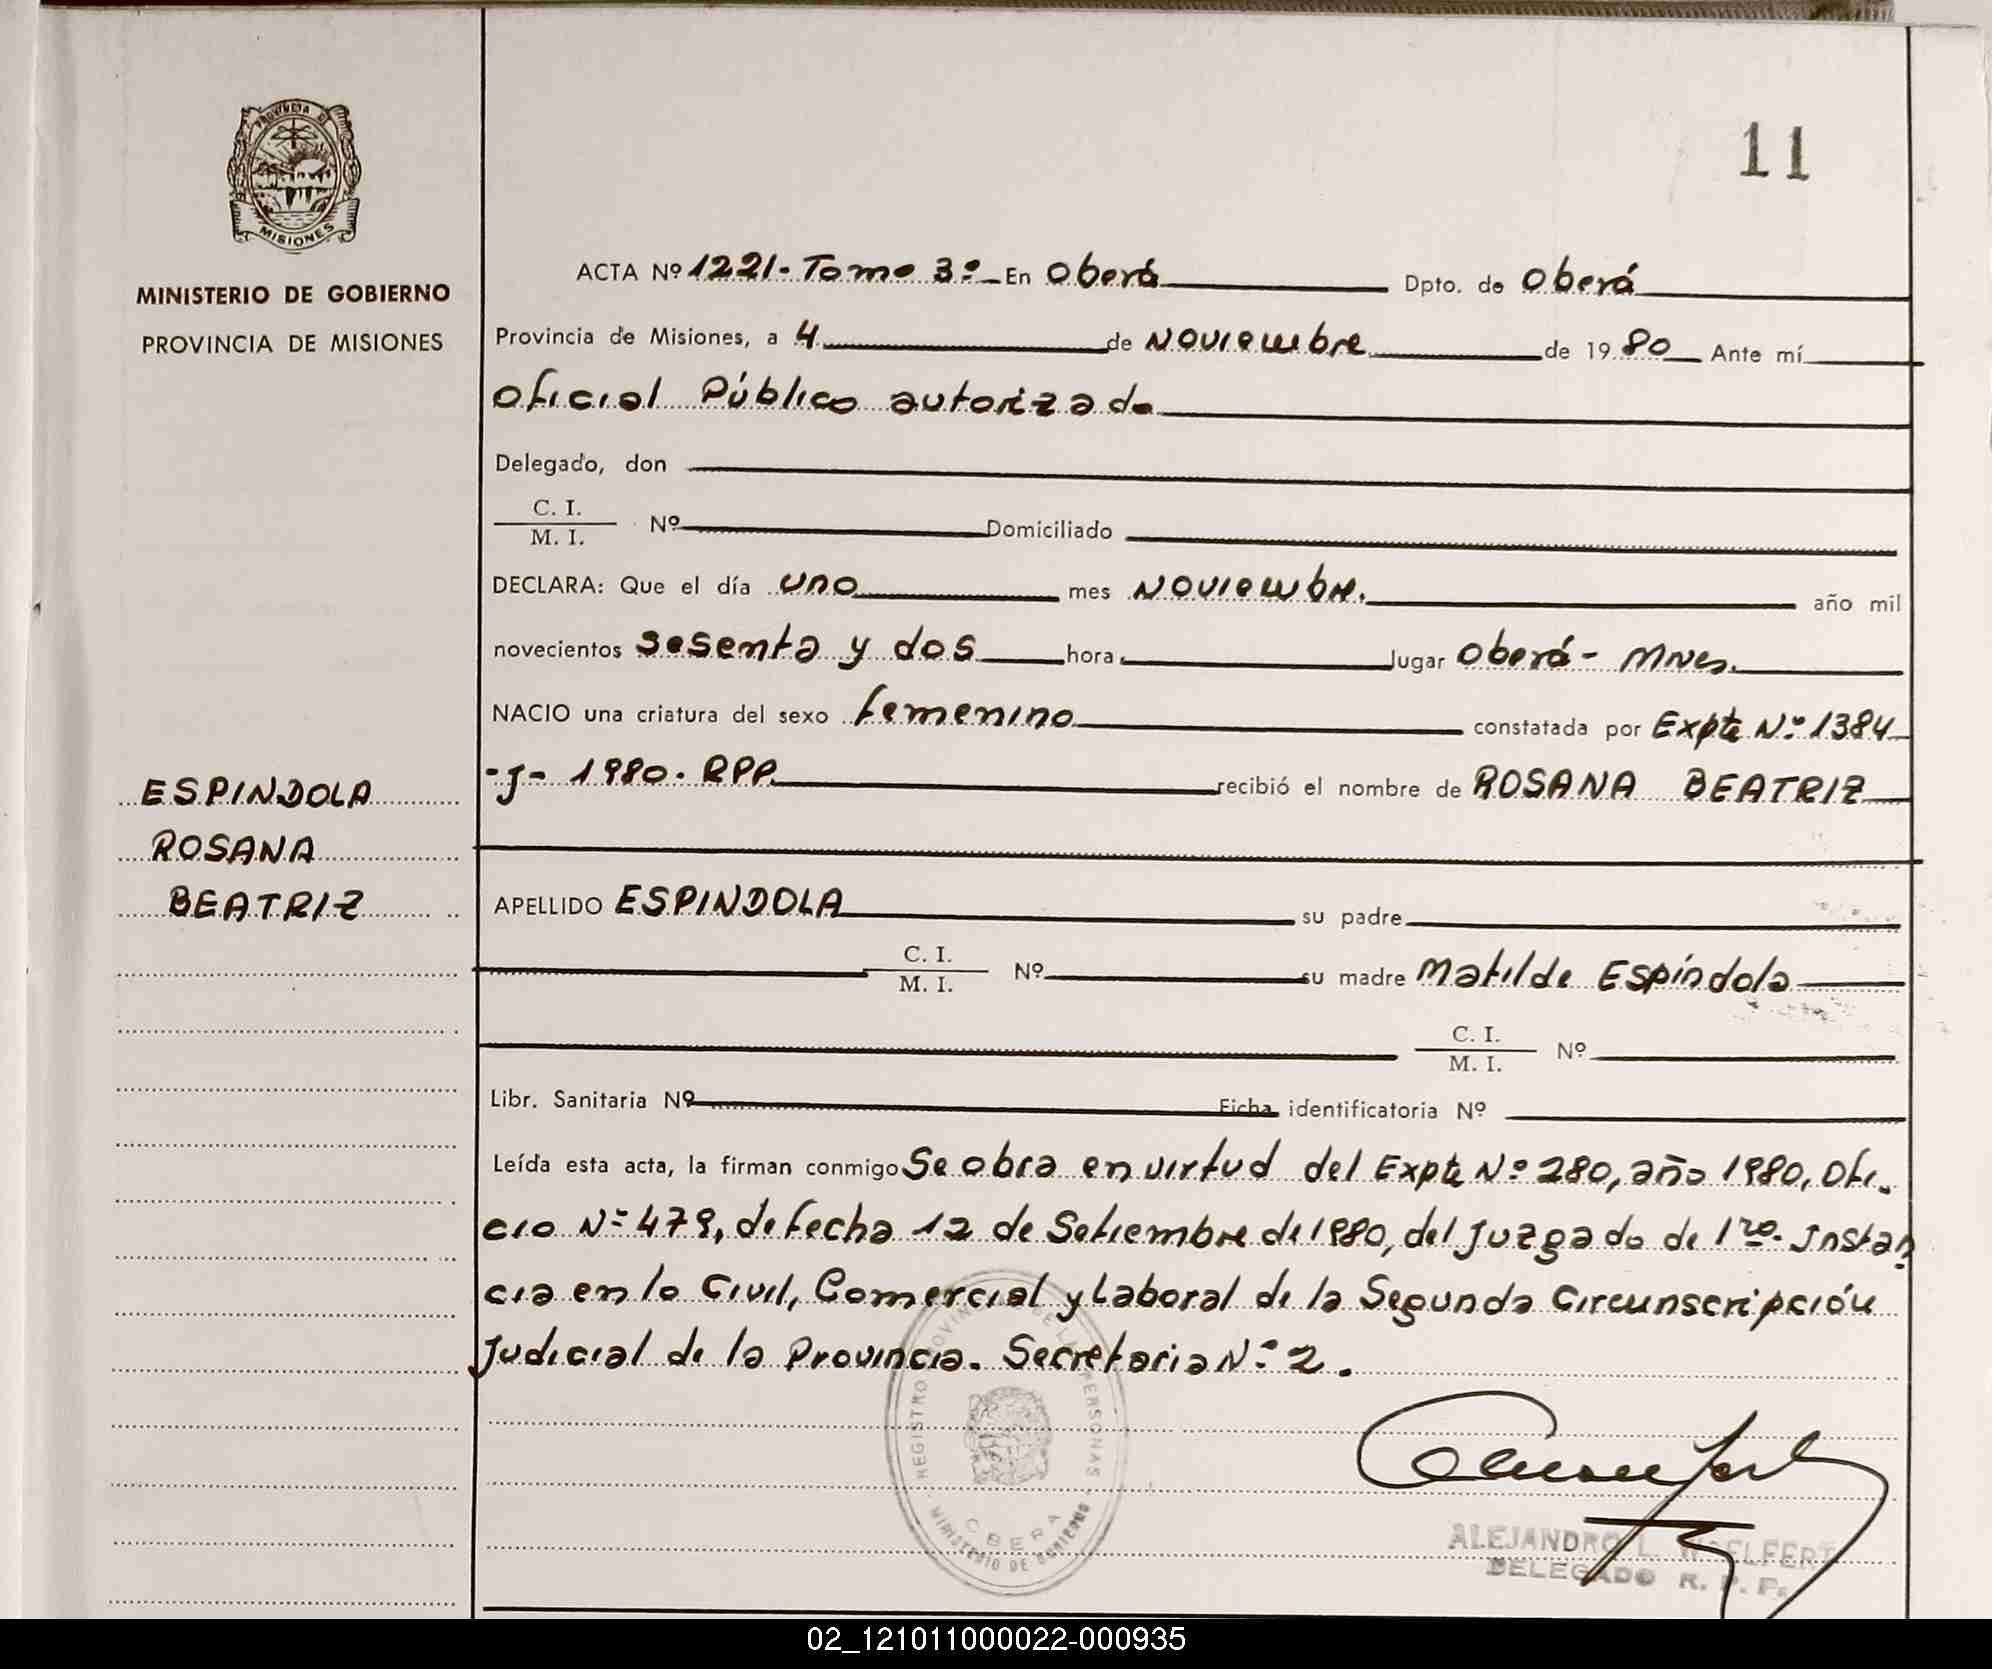 11
PROVINCIA DE
MISIONES
MINISTERIO DE GOBIERNO
PROVINCIA DE MISIONES
ACTA Nº 1221- Tomo 3º En Oberá Dpto. de Oberá
Provincia de Misiones, a 4 de Noviembre de 1980 Ante mí
Oficial Público autorizado
Delegado, don
C. I.
M. I. Nº Domiciliado
DECLARA: Que el día uno mes Noviembre. año mil
novecientos sesenta y dos hora lugar Oberá - Mnes.
NACIO una criatura del sexo femenino constatada por Expte Nº 1384
-J- 1980. RPP. recibió el nombre de ROSANA BEATRIZ
ESPINDOLA
ROSANA
BEATRIZ
APELLIDO ESPINDOLA su padre
C. I.
M. I. Nº su madre Matilde Espíndola
C. I.
M. I. Nº
Libr. Sanitaria Nº Ficha identificatoria Nº
Leída esta acta, la firman conmigo Se obra en virtud del Expte Nº 280, año 1980, Ofi-
cio Nº 479, de fecha 12 de Setiembre de 1980, del Juzgado de 1ra. Instan
cia en lo Civil, Comercial y Laboral de la Segunda Circunscripción
Judicial de la Provincia. Secretaria Nº 2.
REGISTRO PROVINCIAL DE LAS PERSONAS
OBERA
MINISTERIO DE GOBIERNO
ALEJANDRO L. WOELFERT
DELEGADO R. P. P.
02_121011000022-000935